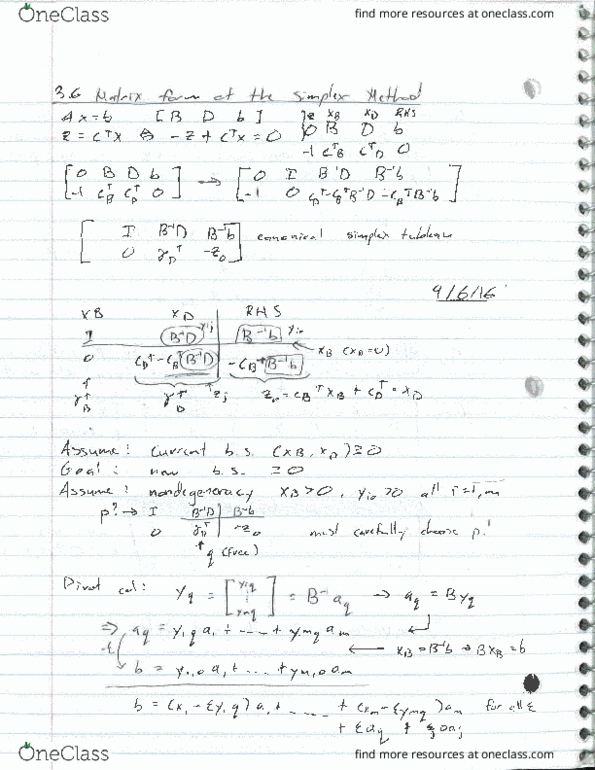 OneClass
find more resources at oneclass.com
3.6 Matrix form of the simplex Method
Ax=b [B D b] z xB xD RHS
z = cᵀx ⇔ -z + cᵀx = 0 0 B D b
-1 cBᵀ cDᵀ 0
[0 B D b] → [0 I B⁻¹D B⁻¹b]
[-1 cBᵀ cDᵀ 0] [-1 0 cDᵀ-cBᵀB⁻¹D -cBᵀB⁻¹b]
[I B⁻¹D B⁻¹b] canonical simplex tableau
[0 γDᵀ -z₀]
9/6/16
xB xD RHS
I B⁻¹D yij B⁻¹b yio
0 cDᵀ - cB(B⁻¹D) -cBᵀB⁻¹b ← xB (xD=0)
↑ ↑ zj
γBᵀ γDᵀ z₀ = cBᵀxB + cDᵀ · xD
Assume: Current b.s. (xB, xD) ≥0
Goal: new b.s. ≥0
Assume: nondegeneracy xB>0, yio>0 all i=1,m
p? → I B⁻¹D B⁻¹b
0 γDᵀ -z₀ must carefully choose p!
↑ q (free)
Pivot col: yq = [y1q ⋮ ymq] = B⁻¹aq → aq = Byq
⇒ aq = y1q a1 + ---- + ymq am
-ε ← xB = B⁻¹b ⇒ BxB = b
b = y1,0 a1 + ... + ym,0 am
b = (x1 - εy1q) a1 + ---- + (xm - εymq) am for all ε
+ εaq +
OneClass
find more resources at oneclass.com